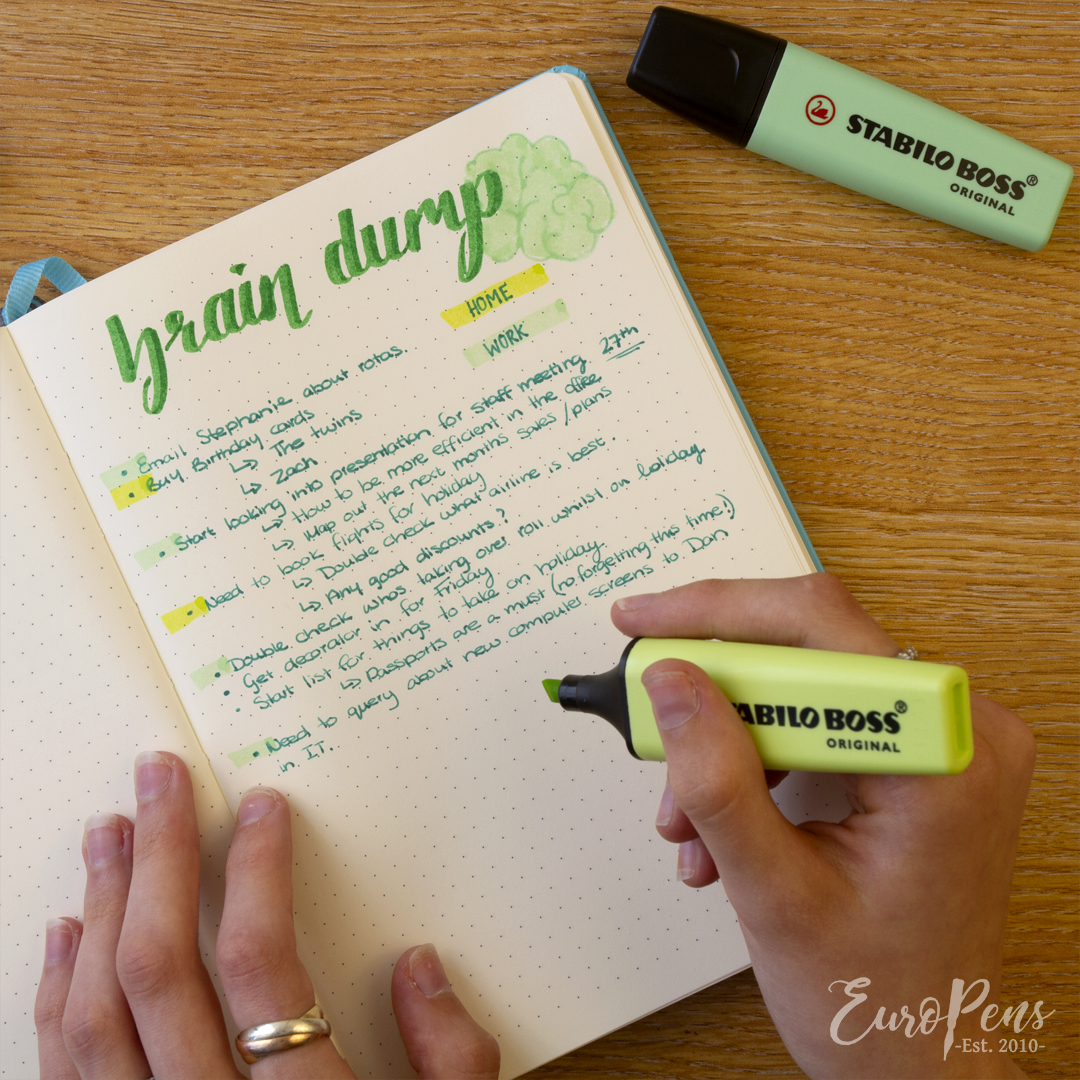 STABILO BOSS®
ORIGINAL
brain dump
HOME
WORK
• Email Stephanie about rotas.
• Buy Birthday cards
↳ The twins
↳ Zach
• Start looking into presentation for staff meeting 27th
↳ How to be more efficient in the office
↳ Map out the next months sales / plans
• Need to book flights for holiday
↳ Double check what airline is best.
↳ Any good discounts?
• Double check whos taking over roll whilst on holiday.
• Get decorator in for Friday
• Start list for things to take on holiday.
↳ Passports are a must (no forgetting this time!)
• Need to query about new computer screens to Dan
in I.T.
STABILO BOSS®
ORIGINAL
EuroPens
-Est. 2010-